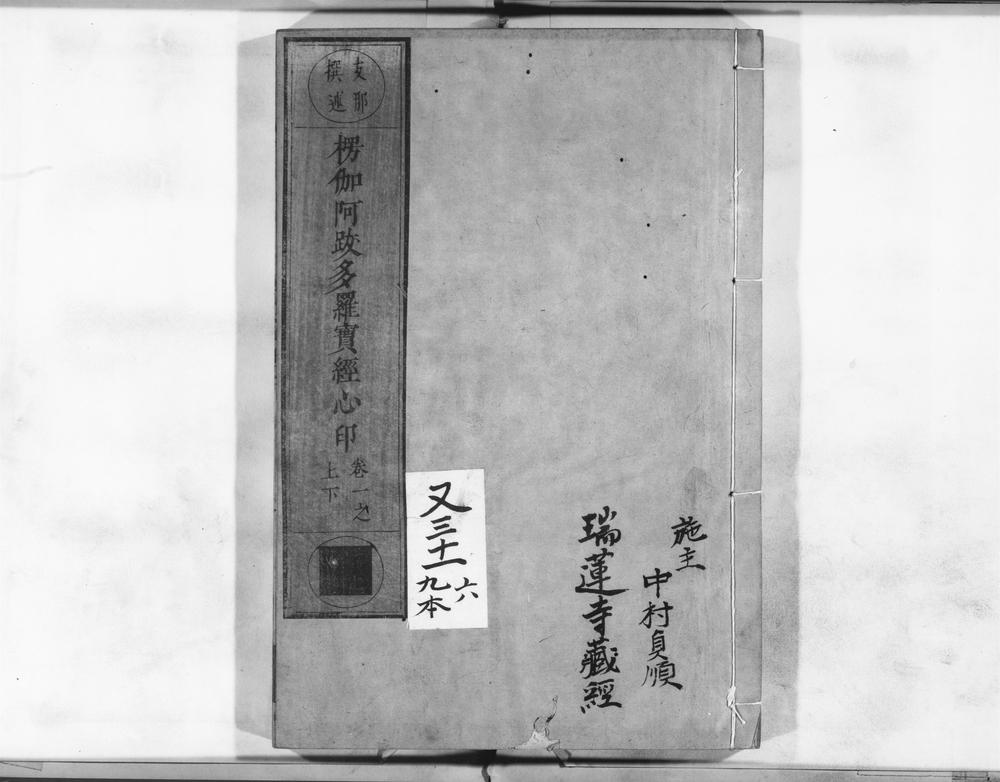 施主
中村貞順
瑞蓮寺藏經
支那
撰述
楞伽阿跋多羅寶經心印
卷一之
上下
又三十一
六
九本